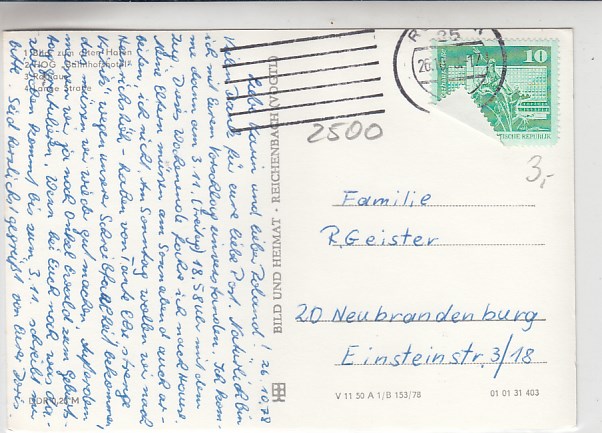 1 Blick zum alten Hafen
2 HOG „Bahnhofshotel“
3 Rathaus
4 Lange Straße
Liebe Karin und lieber Roland! 26.10.78
Vielen Dank für eure liebe Post. Natürlich bin
ich mit Eurem Vorschlag einverstanden. Ich kom-
me dann am 3.11. (Freitag) 18.58 Uhr mit dem
Zug. Dieses Wochenende fahre ich nach Hause.
Meine Eltern müssen am Sonnabend auch ar-
beiten, ich nicht. Am Sonntag wollen wir nach
haben von Tante Else strenge
wegen unserer bekommen,
das müssen wir wieder gut machen. Außerdem
müssen wir ja noch Onkel Ewald zum Geburts-
tag gratulieren. Wenn bei Euch noch was da-
zwischen kommt bis zum 3.11. schreibt mir
bitte. Seid herzlichst gegrüßt von Eurer Doris.
DDR 0,25 M
BILD UND HEIMAT · REICHENBACH (VOGTL)
25
10
DEUTSCHE DEMOKRATISCHE REPUBLIK
2500
3,-
Familie
R. Geister
20 Neubrandenburg
Einsteinstr. 3/18
V 11 50 A 1/B 153/78
01 01 31 403